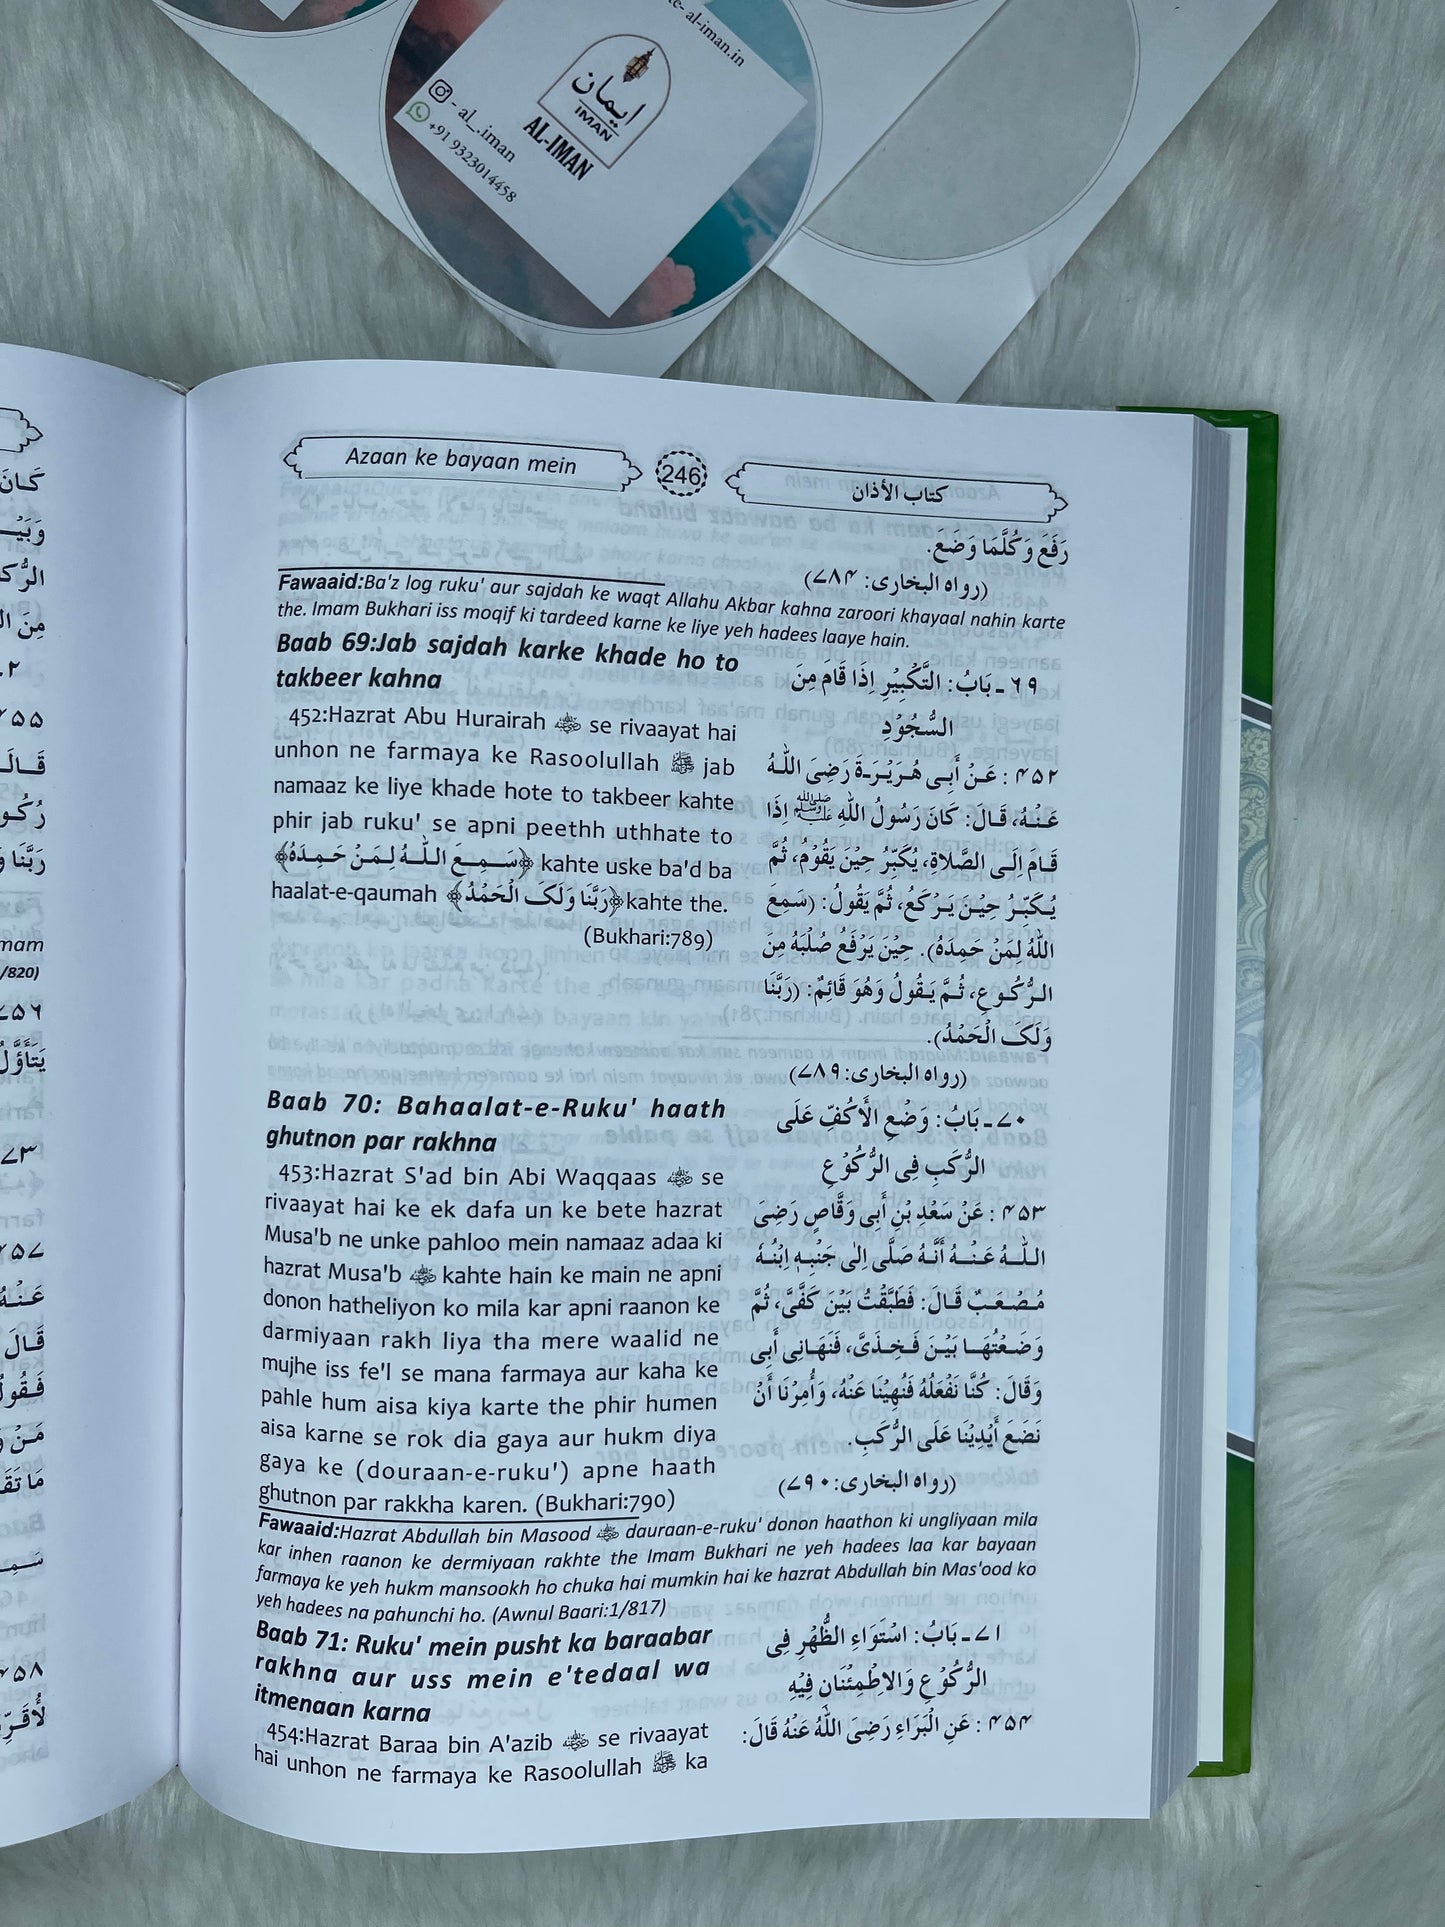 te- al-iman.in
ایمان
IMAN
AL-IMAN
- al_.iman
+91 9323014458
Azaan ke bayaan mein
246
کتاب الأذان
رَفَعَ وَكُلَّمَا وَضَعَ.
(رواه البخاری: ۷۸۴)
Fawaaid:Ba'z log ruku' aur sajdah ke waqt Allahu Akbar kahna zaroori khayaal nahin karte
the. Imam Bukhari iss moqif ki tardeed karne ke liye yeh hadees laaye hain.
Baab 69:Jab sajdah karke khade ho to
takbeer kahna
452:Hazrat Abu Hurairah ؓ se rivaayat hai
unhon ne farmaya ke Rasoolullah ﷺ jab
namaaz ke liye khade hote to takbeer kahte
phir jab ruku' se apni peethh uthhate to
﴿سَمِعَ اللّٰهُ لِمَنْ حَمِدَهُ﴾ kahte uske ba'd ba
haalat-e-qaumah ﴿رَبَّنَا وَلَکَ الْحَمْدُ﴾ kahte the.
(Bukhari:789)
۶۹ ـ بَابُ: التَّكْبِيْرِ اِذَا قَامَ مِنَ
السُّجُوْدِ
۴۵۲ : عَنْ أَبِی هُرَيْرَةَ رَضِیَ اللّٰهُ
عَنْهُ، قَالَ: كَانَ رَسُولُ اللّٰهِ ﷺ اِذَا
قَامَ اِلَی الصَّلَاةِ، يُكَبِّرُ حِيْنَ يَقُوْمُ، ثُمَّ
يُكَبِّرُ حِيْنَ يَرْكَعُ، ثُمَّ يَقُولُ: (سَمِعَ
اللّٰهُ لِمَنْ حَمِدَهُ). حِيْنَ يَرْفَعُ صُلْبَهُ مِنَ
الرُّكُوعِ، ثُمَّ يَقُولُ وَهُوَ قَائِمٌ: (رَبَّنَا
وَلَکَ الْحَمْدُ).
(رواه البخاری: ۷۸۹)
Baab 70: Bahaalat-e-Ruku' haath
ghutnon par rakhna
453:Hazrat S'ad bin Abi Waqqaas ؓ se
rivaayat hai ke ek dafa un ke bete hazrat
Musa'b ne unke pahloo mein namaaz adaa ki
hazrat Musa'b ؓ kahte hain ke main ne apni
donon hatheliyon ko mila kar apni raanon ke
darmiyaan rakh liya tha mere waalid ne
mujhe iss fe'l se mana farmaya aur kaha ke
pahle hum aisa kiya karte the phir humen
aisa karne se rok dia gaya aur hukm diya
gaya ke (douraan-e-ruku') apne haath
ghutnon par rakkha karen. (Bukhari:790)
۷۰ ـ بَابُ: وَضْعِ الْأَكُفِّ عَلَی
الرُّكَبِ فِی الرُّكُوْعِ
۴۵۳ : عَنْ سَعْدِ بْنِ أَبِی وَقَّاصٍ رَضِیَ
اللّٰهُ عَنْهُ أَنَّهُ صَلَّی اِلٰی جَنْبِهٖ اِبْنُهٗ
مُصْعَبٌ قَالَ: فَطَبَّقْتُ بَيْنَ كَفَّیَّ، ثُمَّ
وَضَعْتُهَا بَيْنَ فَخِذَیَّ، فَنَهَانِی أَبِی
وَقَالَ: كُنَّا نَفْعَلُهُ فَنُهِيْنَا عَنْهُ، وَأُمِرْنَا أَنْ
نَضَعَ أَيْدِيْنَا عَلَی الرُّكَبِ.
(رواه البخاری: ۷۹۰)
Fawaaid:Hazrat Abdullah bin Masood ؓ dauraan-e-ruku' donon haathon ki ungliyaan mila
kar inhen raanon ke dermiyaan rakhte the Imam Bukhari ne yeh hadees laa kar bayaan
farmaya ke yeh hukm mansookh ho chuka hai mumkin hai ke hazrat Abdullah bin Mas'ood ko
yeh hadees na pahunchi ho. (Awnul Baari:1/817)
Baab 71: Ruku' mein pusht ka baraabar
rakhna aur uss mein e'tedaal wa
itmenaan karna
454:Hazrat Baraa bin A'azib ؓ se rivaayat
hai unhon ne farmaya ke Rasoolullah ﷺ ka
۷۱ ـ بَابُ: اسْتَوَاءِ الظُّهْرِ فِی
الرُّكُوْعِ وَالاِطْمِئْنَانِ فِيْهِ
۴۵۴ : عَنِ الْبَرَاءِ رَضِیَ اللّٰهُ عَنْهُ قَالَ: